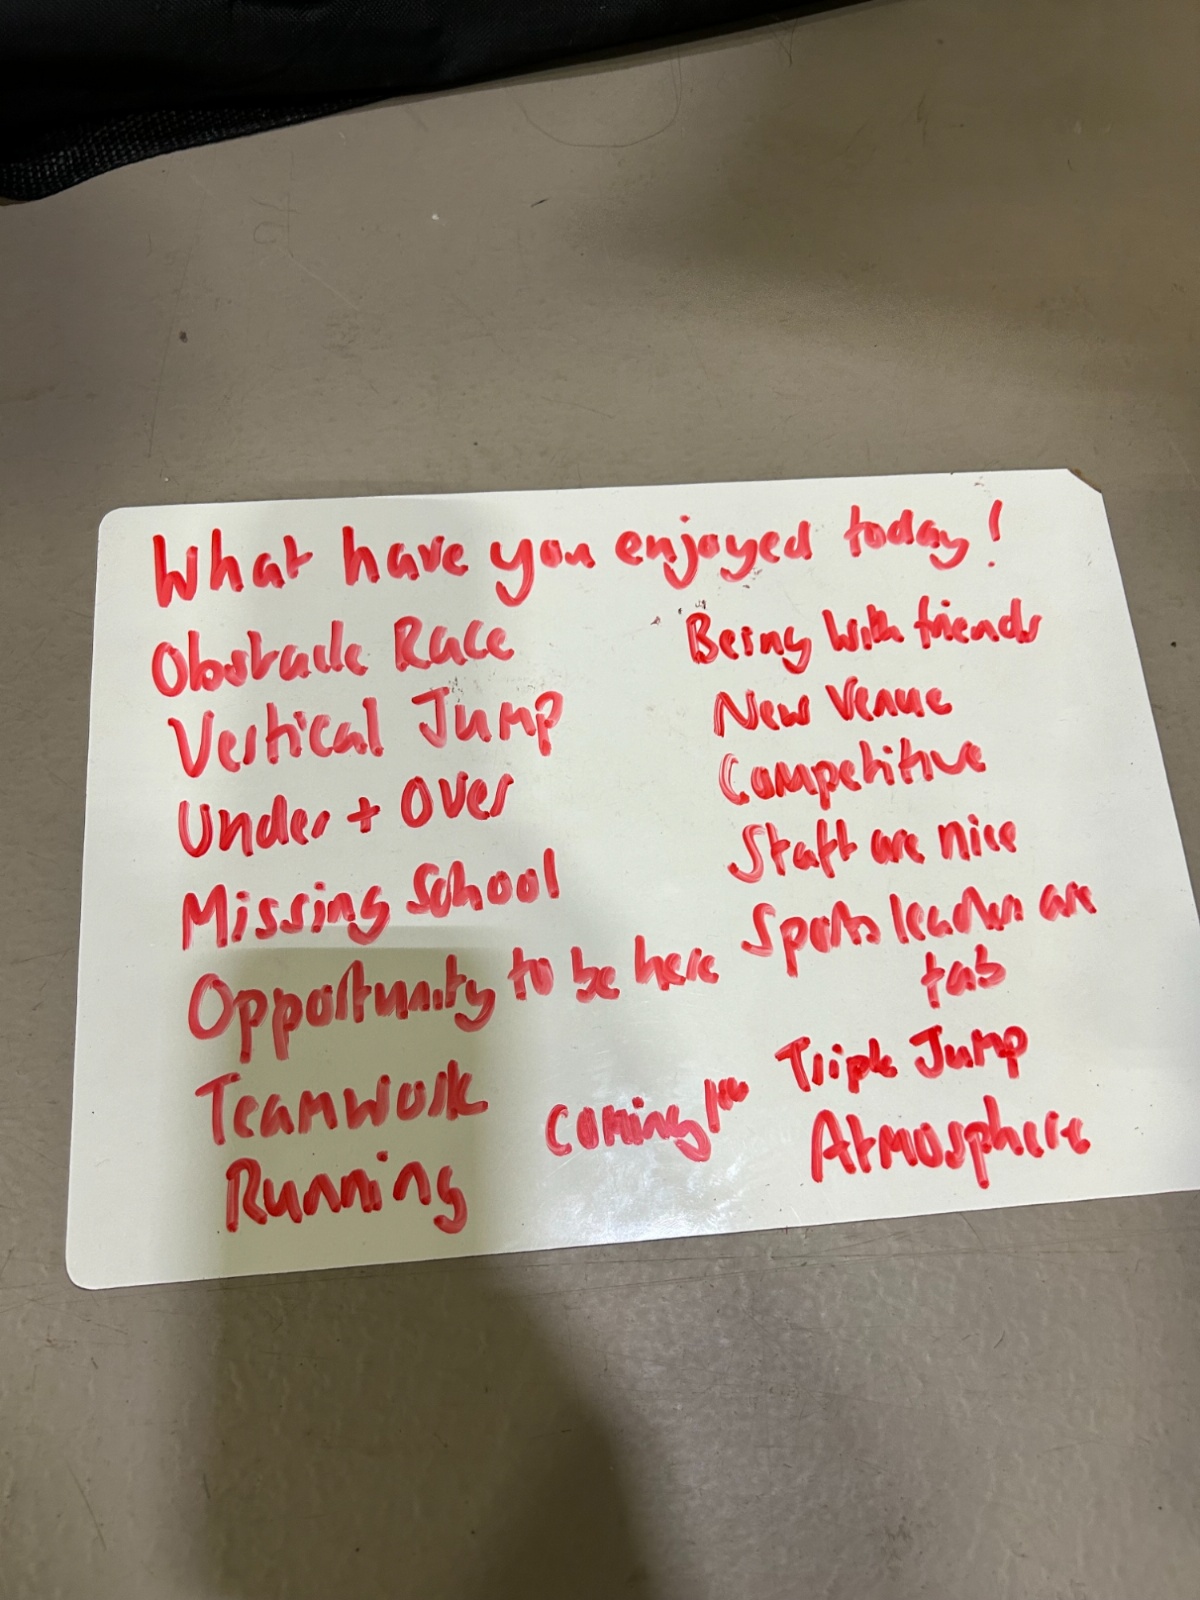 What have you enjoyed today!
Obstacle Race
Vertical Jump
Under + Over
Missing School
Opportunity to be here
Teamwork
Running
Coming 1st
Being with friends
New Venue
Competitive
Staff are nice
Sports leaders are
fab
Triple Jump
Atmosphere